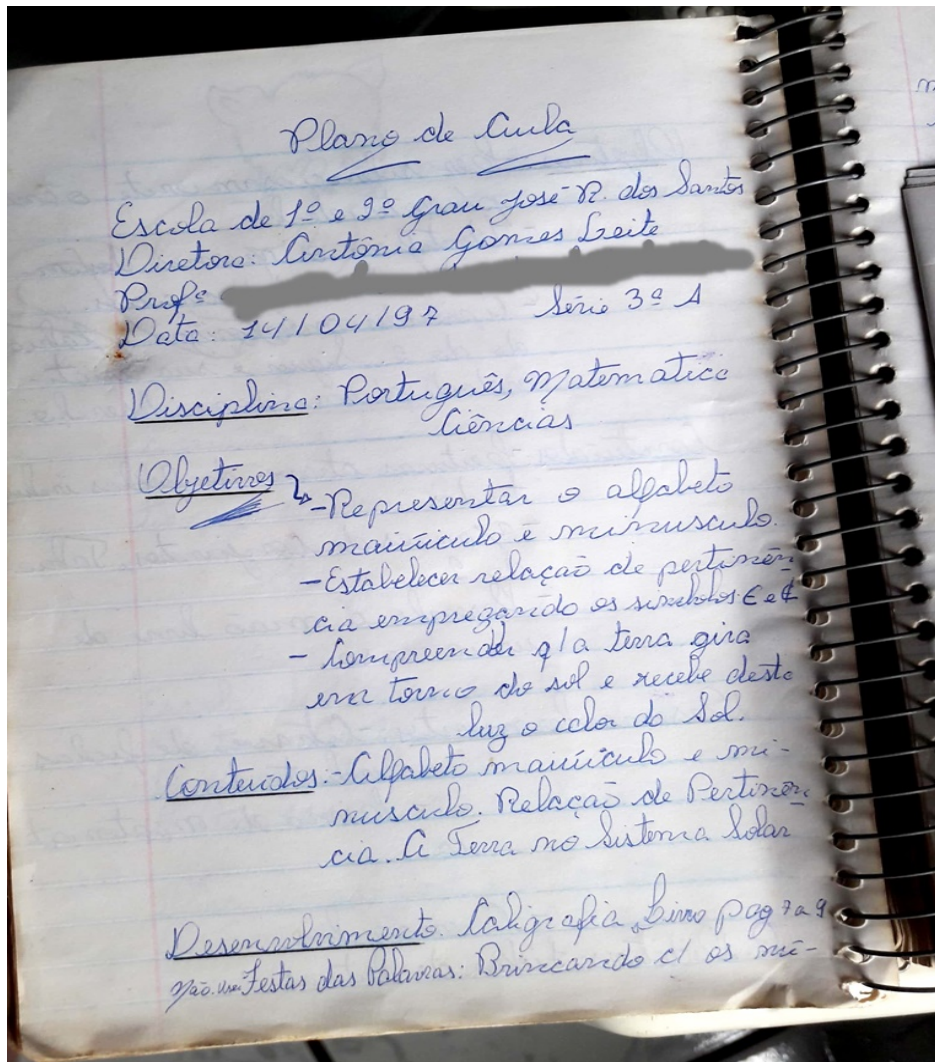 Plano de Aula
Escola de 1º e 2º Grau José R. dos Santos
Diretora: Antônia Gomes Leite
Profª
Data: 14/04/97 Série 3ª A
Disciplina: Português, Matematica
Ciências
Objetivos
- Representar o alfabeto
maiúiculo e minusculo.
- Estabelecer relação de pertinên
cia empregando os simbolos ∈ e ∉
- Compreender q/ a terra gira
em torno do sol e recebe deste
luz o calor do Sol.
Conteúdos: - Alfabeto maiúiculo e mi-
núsculo. Relação de Pertinên
cia. A Terra no Sistema Solar
Desenvolvimento. Caligrafia, Livro pag 7 a 9
Não. Festas das Palavras: Brincando c/ os mi-